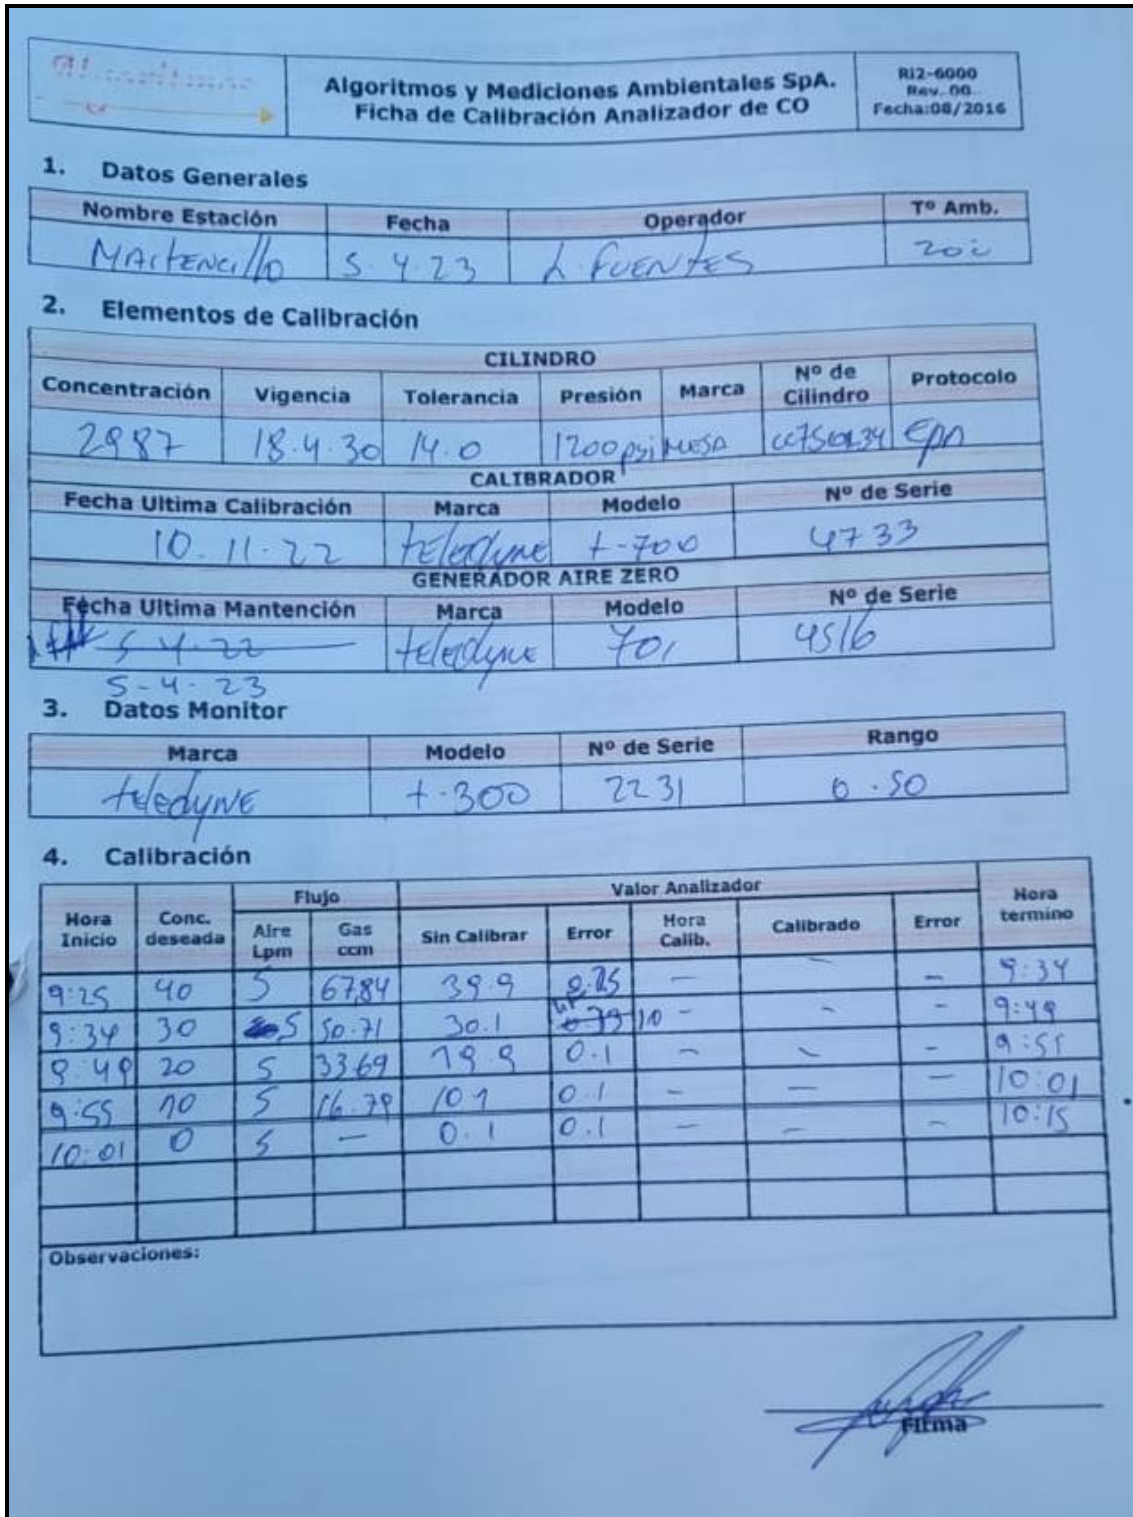 Algoritmos
Algoritmos y Mediciones Ambientales SpA.
Ficha de Calibración Analizador de CO
Ri2-6000
Rev. 00
Fecha:08/2016
1. Datos Generales
Nombre Estación Fecha Operador Tº Amb.
MAITENCillo 5.4.23 L. FUENTES 20
2. Elementos de Calibración
CILINDRO
Concentración Vigencia Tolerancia Presión Marca Nº de Cilindro Protocolo
2987 18.4.30 14.0 1200 psi epa
CALIBRADOR
Fecha Ultima Calibración Marca Modelo Nº de Serie
10.11.22 teledyne t-700 4733
GENERADOR AIRE ZERO
Fecha Ultima Mantención Marca Modelo Nº de Serie
5-4-22 teledyne 701 4516
5-4-23
3. Datos Monitor
Marca Modelo Nº de Serie Rango
teledyne t-300 2231 0-50
4. Calibración
Flujo Valor Analizador
Hora Inicio Conc. deseada Aire Lpm Gas ccm Sin Calibrar Error Hora Calib. Calibrado Error Hora termino
9:25 40 5 67.84 39.9 0.25 - - - 9:34
9:34 30 5 50.71 30.1 - - - 9:49
9:49 20 5 33.69 19.9 0.1 - - - 9:55
9:55 10 5 16.79 10.1 0.1 - - - 10:01
10:01 0 5 - 0.1 0.1 - - - 10:15
Observaciones:
Firma